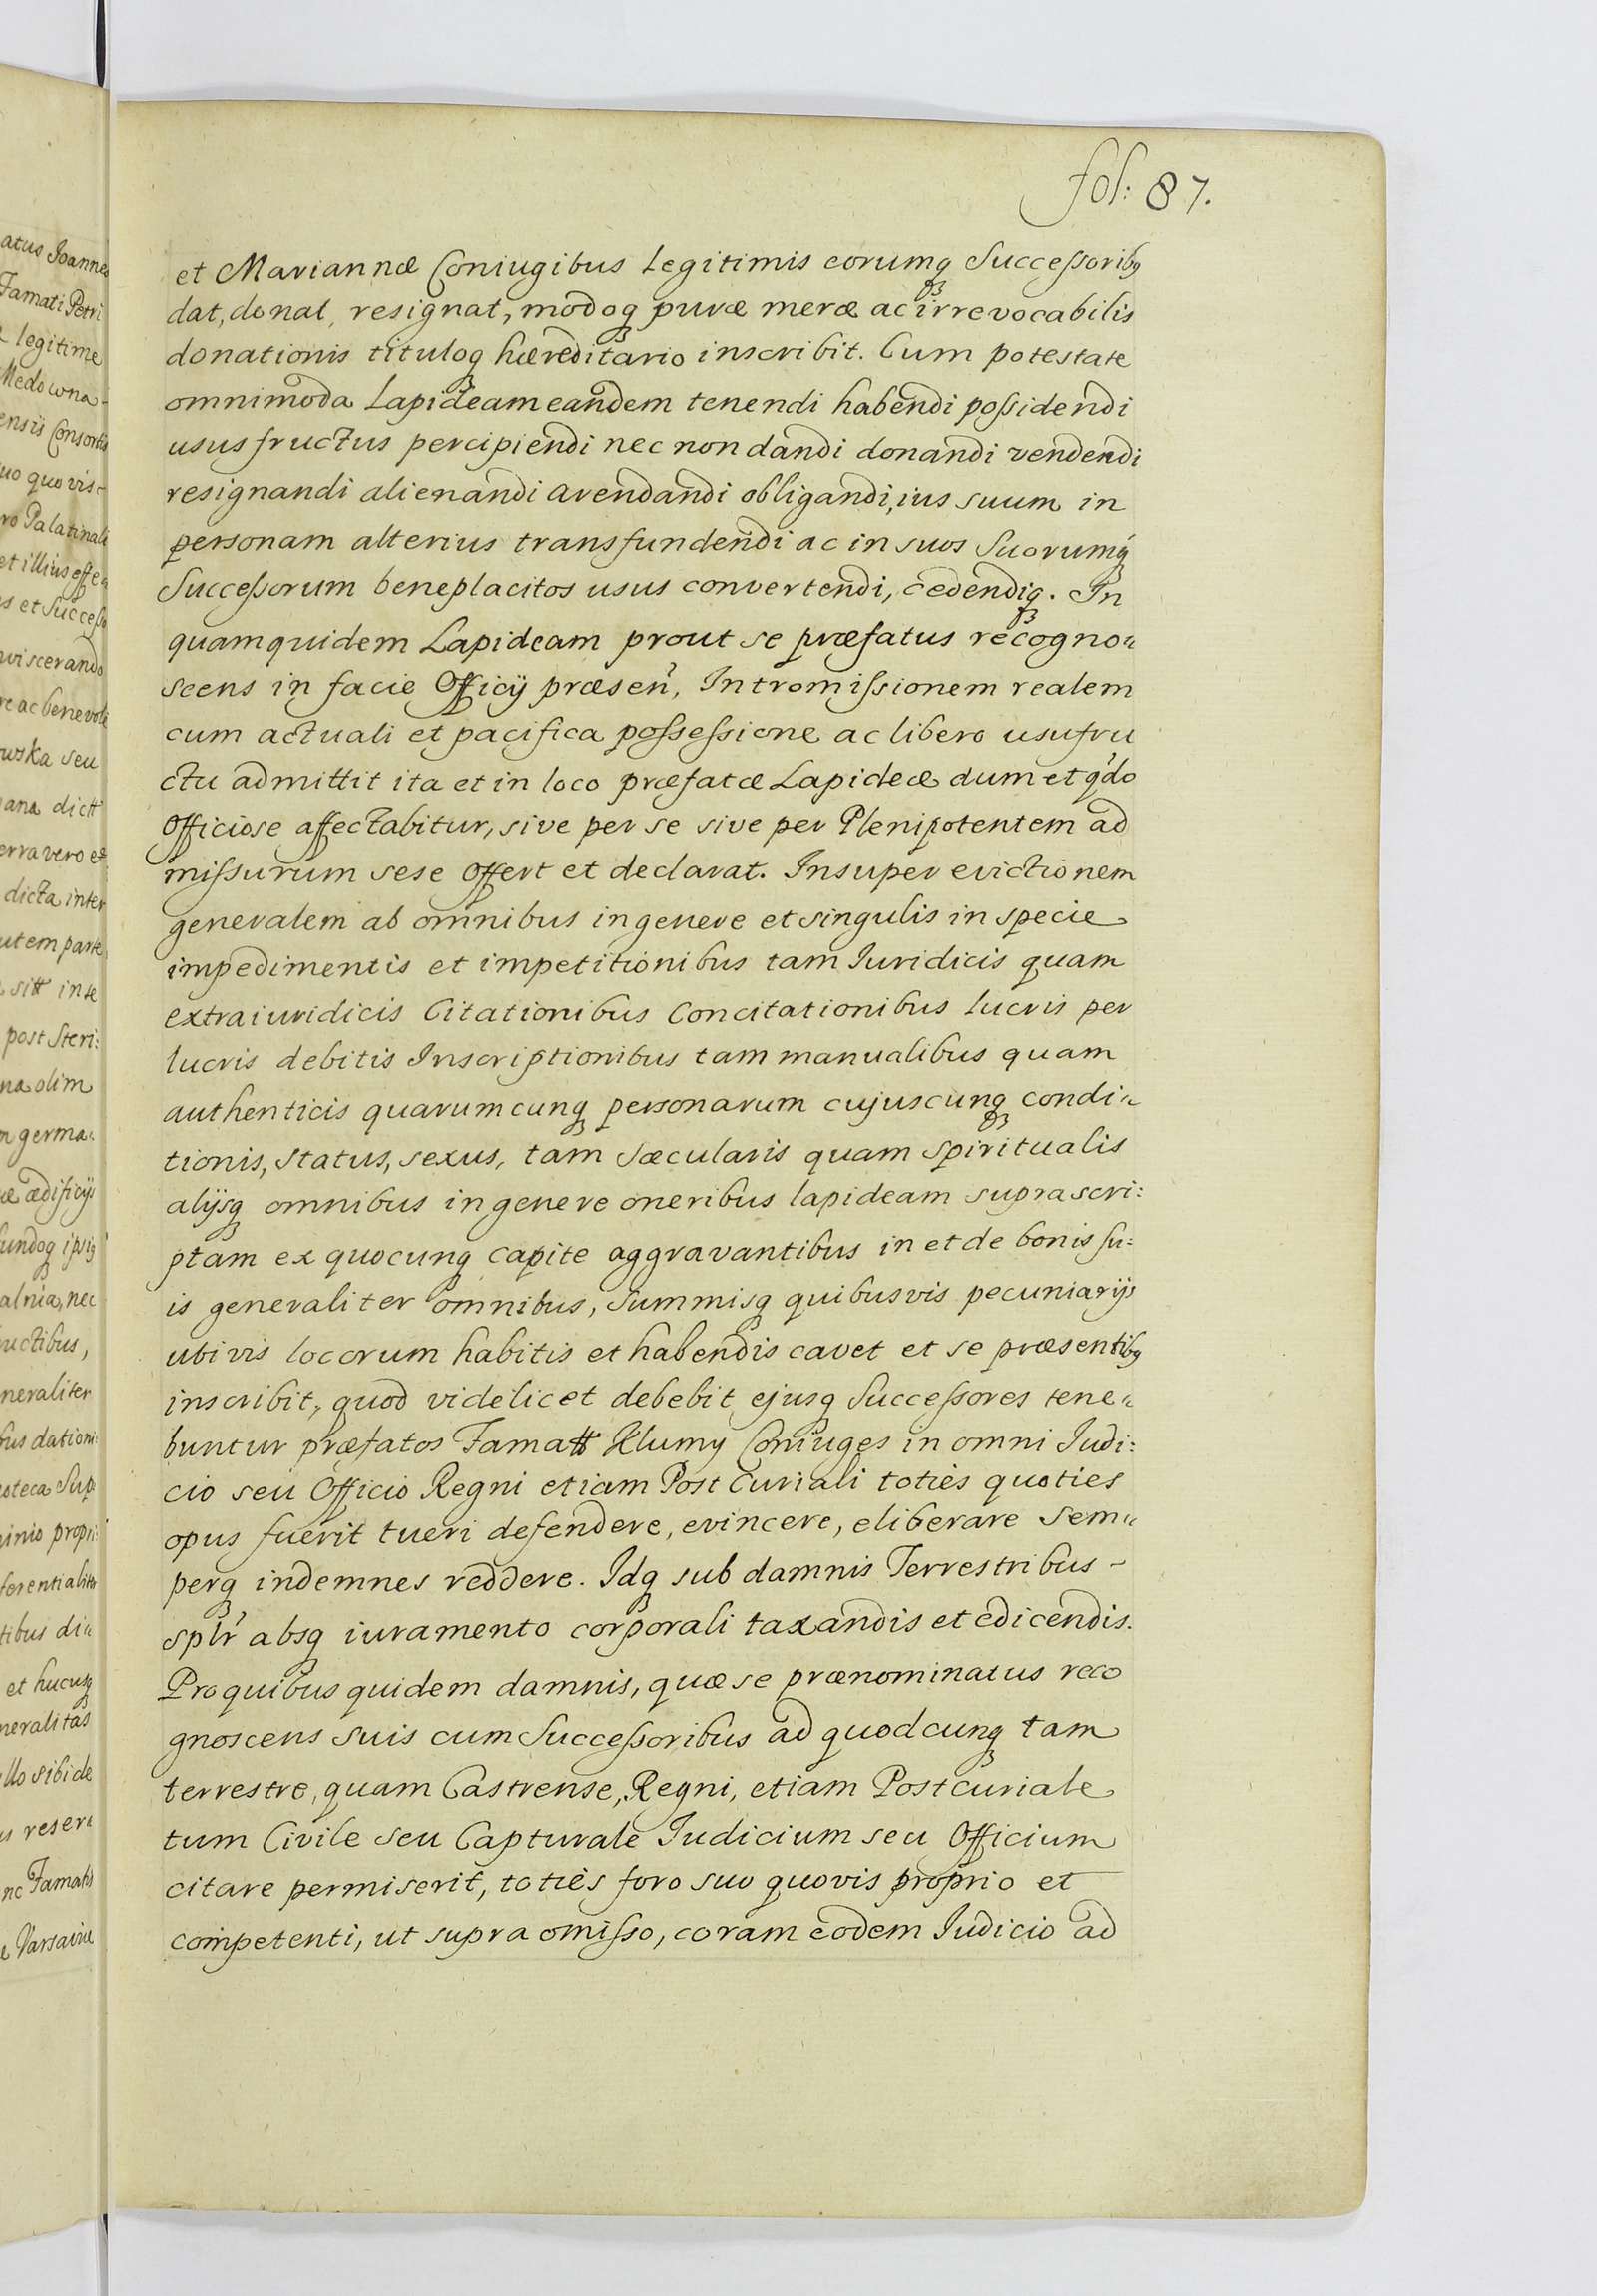 fol: 87.
et Mariannæ Coniugibus Legitimis eorumq₃ Succeſsorib₉
dat, donat, resignat, modoq₃ puræ meræ ac irrevocabilis
donationis tituloq₃ hæreditario inscribit. Cum potestate
omnimoda Lapideam eandem tenendi habendi poſsidendi
usus fructus percipiendi nec non dandi donandi vendendi
resignandi alienandi arendandi obligandi, ius suum in
personam alterius transfundendi ac in suos Suorumq₃
Succeſsorum beneplacitos usus convertendi, cedendiq₃. In
quam quidem Lapideam prout se præfatus recogno„
scens in facie Officij præsen', Intromiſsionem realem
cum actuali et pacifica poſseſsione ac libero usufru
ctu admittit ita et in loco præfatæ Lapideæ dum et q'do
Officiose affectabitur, sive per se sive per Plenipotentem ad
miſsurum sese Offert et declarat. Insuper evictionem
generalem ab omnibus in genere et singulis in specie
impedimentis et impetitionibus tam Iuridicis quam
extraiuridicis Citationibus Concitationibus lucris per
lucris debitis Inscriptionibus tam manualibus quam
authenticis quarumcunq₃ personarum cujuscunq₃ condi„
tionis, status, sexus, tam sæcularis quam spiritualis
alijsq₃ omnibus in genere oneribus lapideam suprascri:
ptam ex quocunq₃ capite aggravantibus in et de bonis su:
is generaliter omnibus, Summisq₃ quibusvis pecuniarijs
ubivis locorum habitis et habendis cavet et se præsentib₉
inscribit, quod videlicet debebit ejusq₃ Succeſsores tene„
buntur præfatos Famatt Klumy Coniuges in omni Iudi:
cio seu Officio Regni etiam Post Curiali toties quoties
opus fuerit tueri defendere, evincere, eliberare sem„
perq₃ indemnes reddere. Idq₃ sub damnis Terrestribus -
splr' absq₃ iuramento corporali taxandis et edicendis.
Pro quibus quidem damnis, quæ se prænominatus reco
gnoscens suis cum Succeſsoribus ad quodcunq₃ tam
terrestre, quam Castrense, Regni, etiam Postcuriale
tum Civile seu Capturale Iudicium seu Officium
citare permiserit, toties foro suo quovis proprio et
competenti, ut supra omiſso, coram eodem Iudicio ad
atus Joannes
Famati Petri
legitime
Medowna-
ensis Consortis
uo quovis-
ro Palatinali
et illius effe
s et Succeſso
viscerando
re ac benevole
wska seu
ana dictt
erra vero et
dicta inter
utem parte
sitt inte
post Steri:
na olim
germa„
æ ædificijs
undoq₃ ipsiq₃
alnia, nec
uctibus,
neraliter
bus dationi:
oteca Sup
inio propri:
ferentialiter
tibus di„
et hucusq₃
neralitas
llo sibi de
s reser„
nc Famatis
Varsaviæ